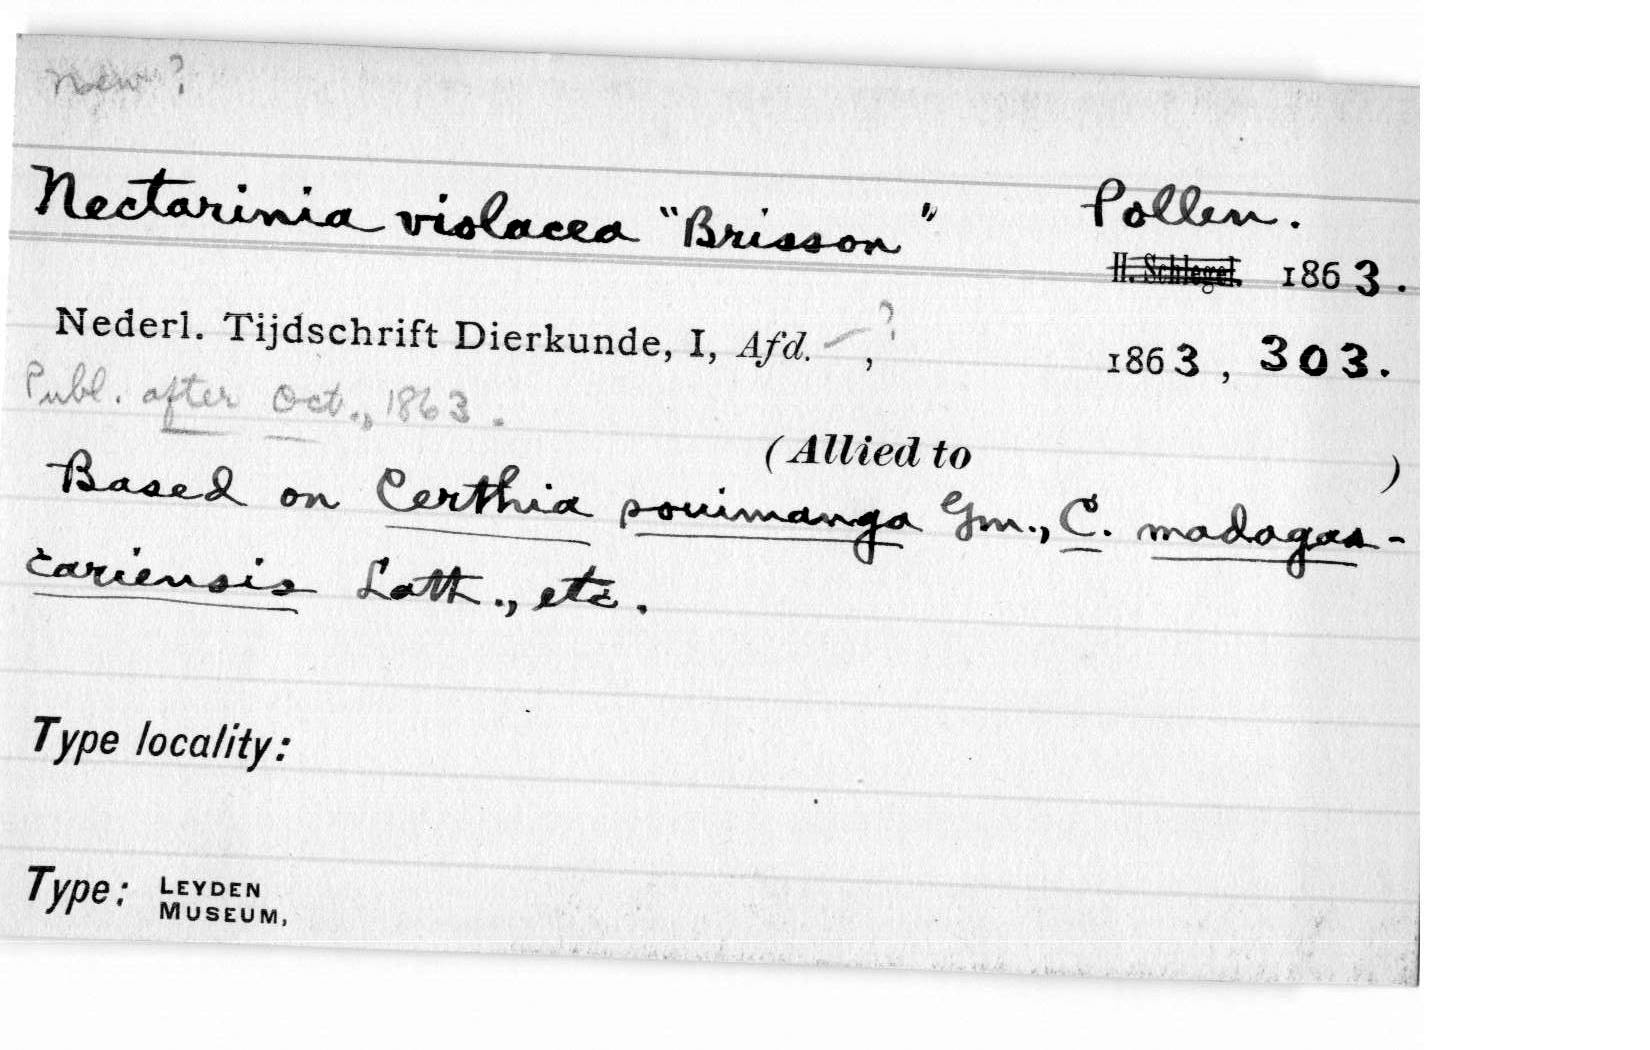 New?
Nectarinia violacea "Brisson" Pollen.
H. Schlegel. 1863.
Nederl. Tijdschrift Dierkunde, I, Afd. – ?, 1863, 303.
Publ. after Oct., 1863.
(Allied to )
Based on Certhia souimanga Gm., C. madagas-
cariensis Lath., etc.
Type locality:
Type: LEYDEN
MUSEUM,